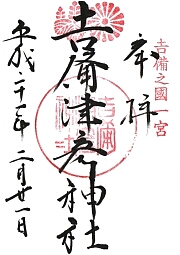 吉備之國一宮
奉拝
吉備津彦神社
平成二十一年二月廿一日